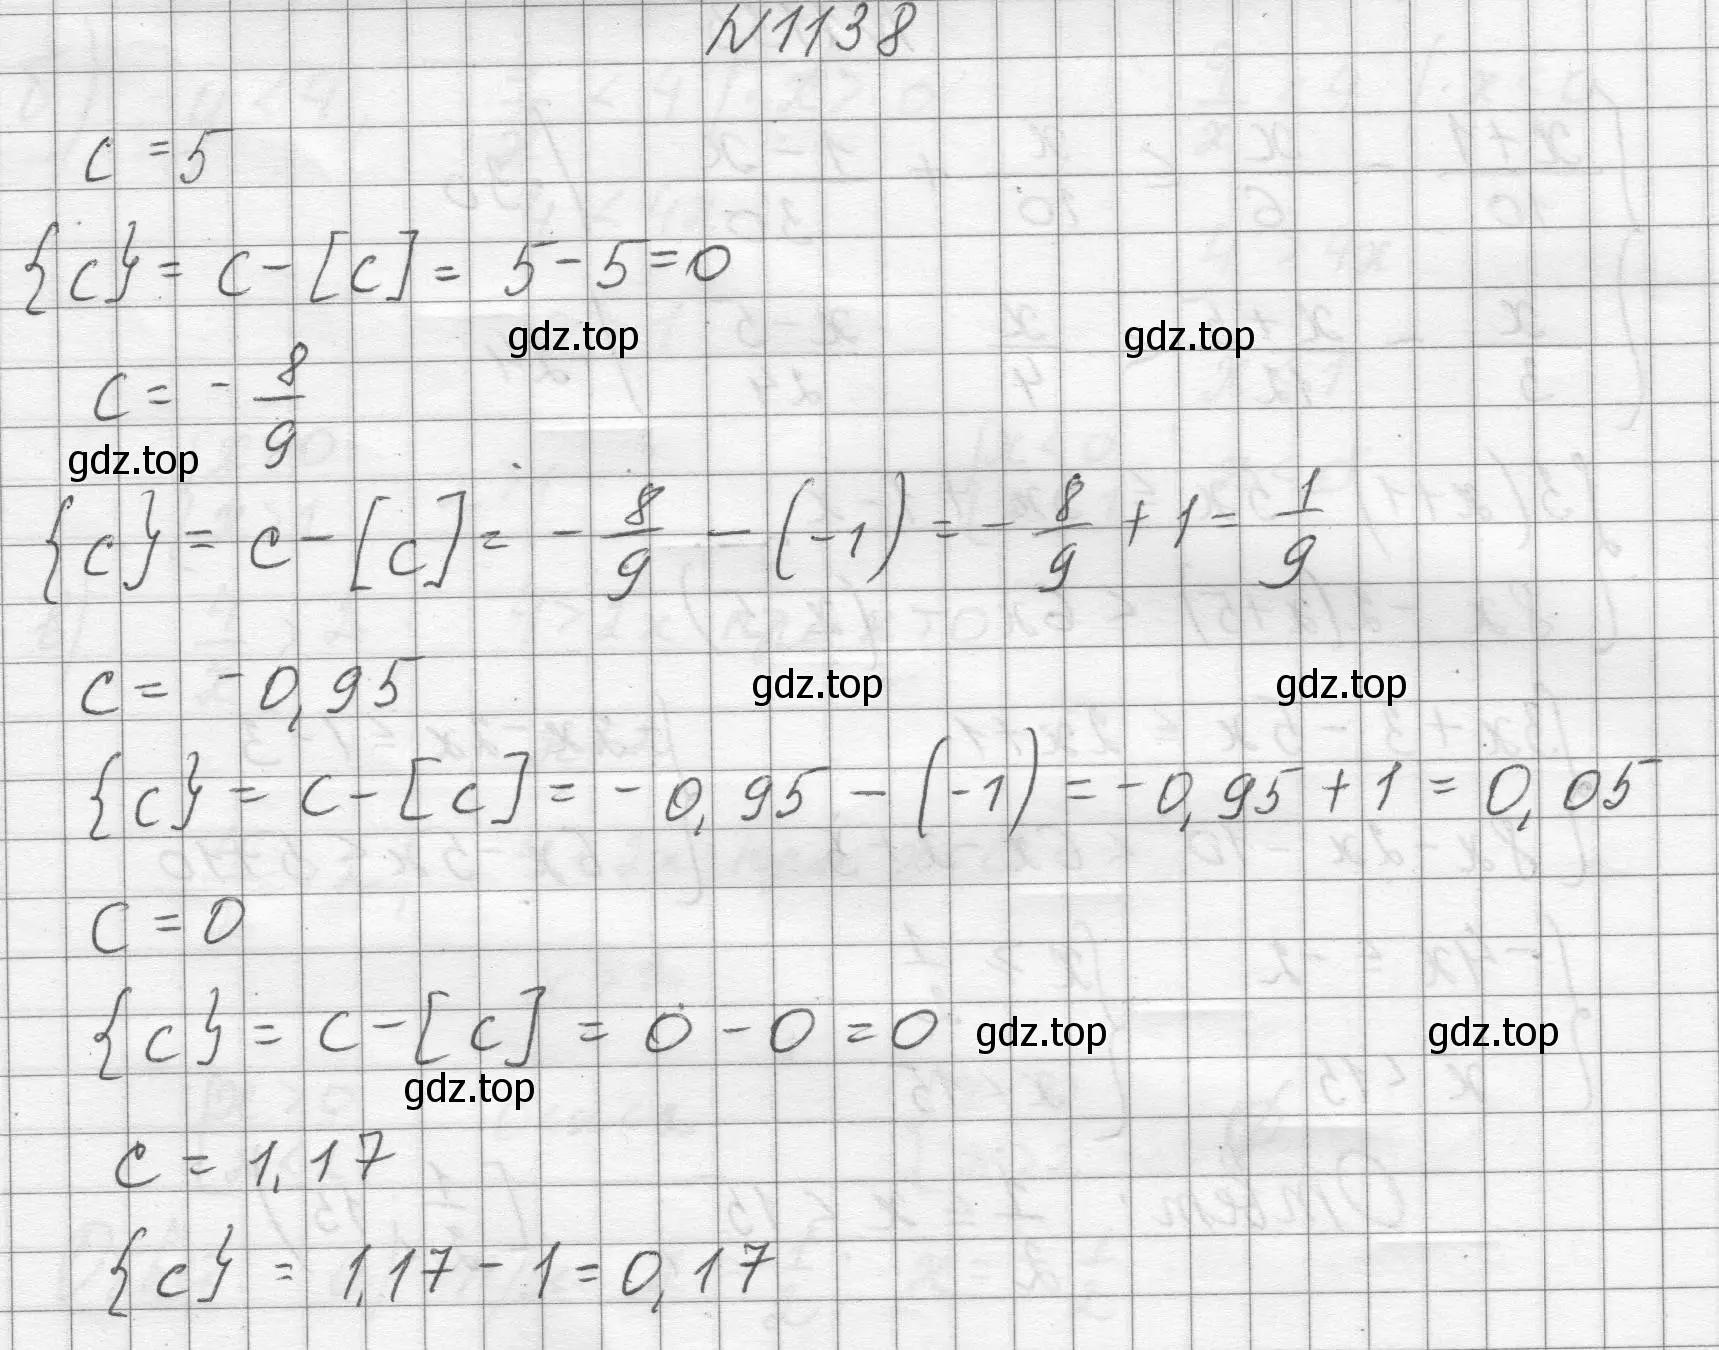 N1138
c = 5
{c} = c - [c] = 5 - 5 = 0
gdz.top gdz.top
c = - 8/9
gdz.top
{c} = c - [c] = - 8/9 - (-1) = - 8/9 + 1 = 1/9
c = -0,95
gdz.top gdz.top
{c} = c - [c] = -0,95 - (-1) = -0,95 + 1 = 0,05
c = 0
{c} = c - [c] = 0 - 0 = 0
gdz.top gdz.top
gdz.top
c = 1,17
{c} = 1,17 - 1 = 0,17